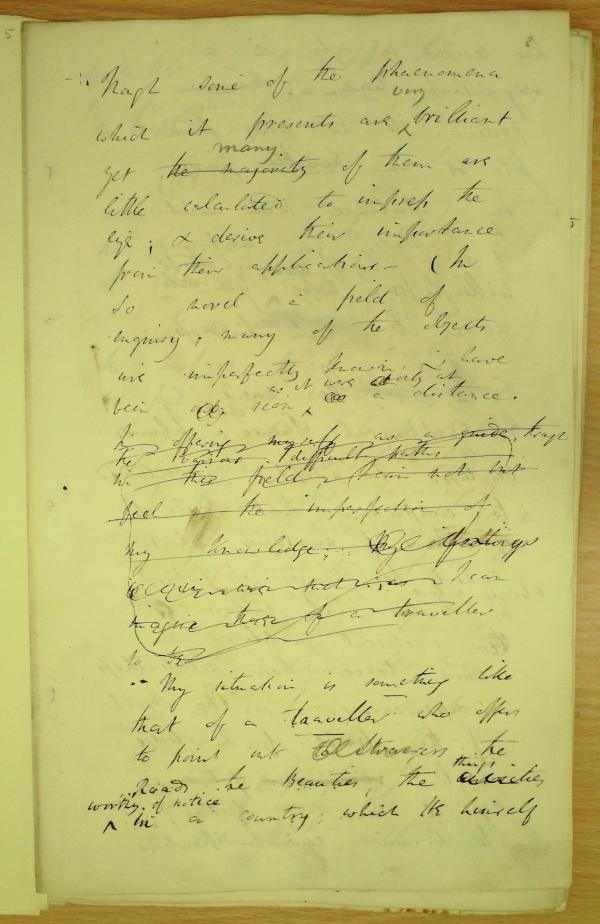 3
5
– Though some of the phaenomena
very
which it presents are ^ brilliant
many
yet the majority of them are
little calculated to impress the
eye; & derive their importance
from their applications – (In
So novel a field of
enquiry; many of the objects
are imperfectly known; & have
as it were only at
been seen ^ a distance.
In offering myself as a guide,
the various difficult paths
in this field, I can not but
feel the imperfection of
my knowledge; feelings
I can
imagine those of a traveller
to
– My situation is something like
that of a traveller who offers
to point out to Strangers the
things
Roads the Beauties, the
worthy of notice
^ in a country; which he himself